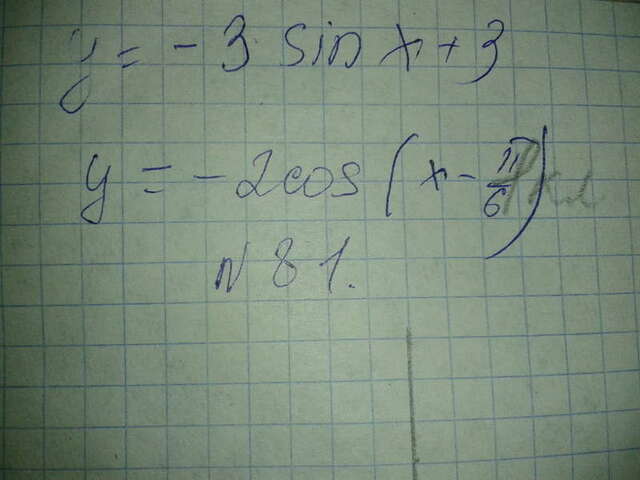 y = - 3 sin x + 3
y = - 2 cos (x - π/6)
N 81.